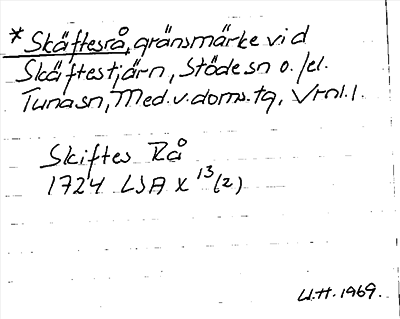 * Skäftesrå, gränsmärke vid
Skäftestjärn, Stöde sn o./el.
Tuna sn, Med.v.doms.tg, Vrnl.l.
Skiftes Rå
1724 LSA X 13(2)
U.H. 1969.